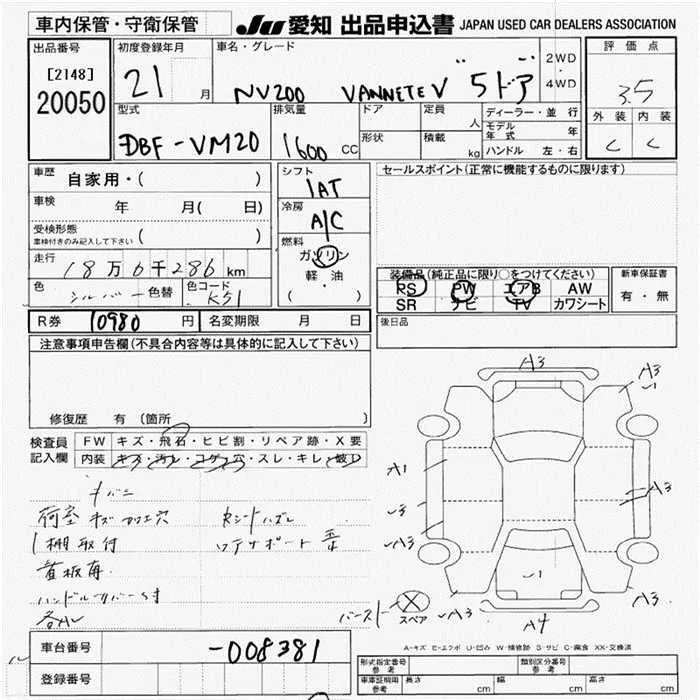 車内保管・守衛保管
JU 愛知 出品申込書 JAPAN USED CAR DEALERS ASSOCIATION
出品番号
[2148]
20050
初度登録年月
21 月
車名・グレード
NV200 VANNETE V 5ドア
2WD
・
4WD
評価点
3.5
外装 内装
C C
型式
DBF-VM20
排気量
1600 CC
ドア
形状
定員
人
積載
kg
ディーラー・並行
モデル年式 年
ハンドル 左・右
車歴 自家用・( )
車検 年 月( 日)
受検形態
車検付きのみ記入して下さい ( )
走行
18万6千286 km
色 シルバー 色替
色コード
K51
シフト
IAT
冷房
A/C
燃料
ガソリン
軽・油
( ・ )
セールスポイント(正常に機能するものに限ります)
装備品(純正品に限り○をつけてください)
PS PW エアB AW
SR ナビ TV カワシート
新車保証書
有・無
R券 10980 円
名変期限 月 日
後日品
注意事項申告欄(不具合内容等は具体的に記入して下さい)
修復歴 有 (箇所 )
検査員
記入欄
FW キズ・飛石・ヒビ割・リペア跡・X要
内装 キズ・汚れ・コゲ・穴・スレ・キレ・破レ
荷室 キズ 加工穴
棚取付
看板有
ハンドルカバー付
A3
A3
A1
A3
A3
A3
A3
A4
スペア
A-キズ E-エクボ U-凹み W-補修跡 S-サビ C-腐食 XX-交換済
車台番号 -008381
登録番号
形式指定番号
参考
類別区分番号
参考
車庫証明用
参考
長さ cm 幅 cm 高さ cm